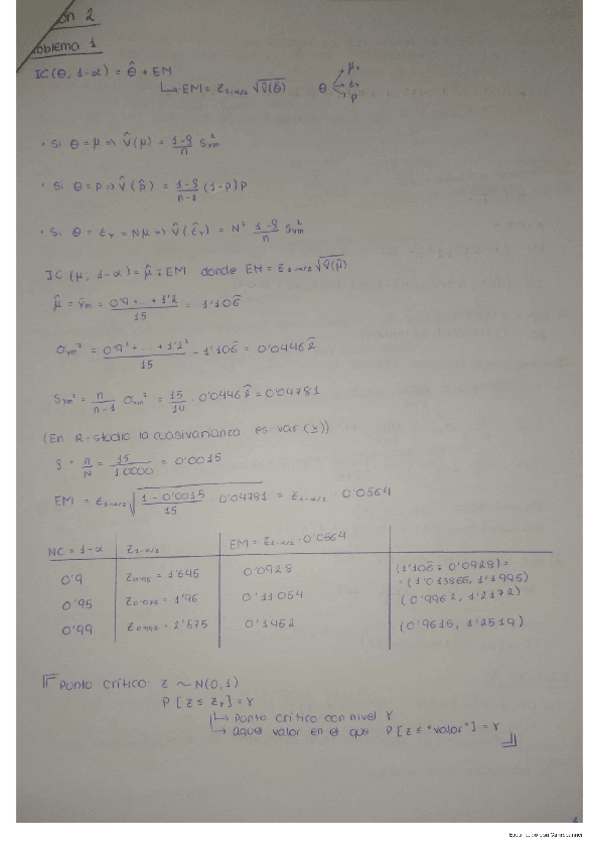 ón 2
oblema 1
IC(θ, 1-α) = θ̂ ∓ EM
↳ EM = z₁₋α/₂ √V̂(θ̂)    θ → μᵧ, tᵧ, p
• Si θ = μ => V̂(μ) = (1-f)/n S²ym
• Si θ = p => V̂(p̂) = (1-f)/(n-1) (1-p) p
• Si θ = tᵧ = Nμ => V̂(t̂ᵧ) = N² (1-f)/n S²ym
IC(μ, 1-α) = μ̂ ∓ EM donde EM = z₁₋α/₂ √V̂(μ̂)
μ̂ = ȳm = (0'9 + ... + 1'2)/15 = 1'106̂
σym² = (0'9² + ... + 1'2²)/15 - 1'106̂ = 0'04462̂
Sym² = n/(n-1) σym² = 15/14 · 0'04462̂ = 0'04781
(En R-studio la cuasivarianza es var(x))
f = n/N = 15/10000 = 0'0015
EM = z₁₋α/₂ √((1-0'0015)/15 · 0'04781) = z₁₋α/₂ · 0'0564
NC = 1-α | z₁₋α/₂ | EM = z₁₋α/₂ · 0'0564
0'9 | z₀'₉₅ = 1'645 | 0'0928 | (1'106̂ ∓ 0'0928) =
= (1'013866, 1'1995)
0'95 | z₀'₉₇₅ = 1'96 | 0'11054 | (0'9962, 1'2172)
0'99 | z₀'₉₉₅ = 2'575 | 0'1452 | (0'9615, 1'2519)
Punto crítico: z ~ N(0,1)
P[z ≤ zᵧ] = γ
↳ Punto crítico con nivel γ
↳ aquel valor en el que P[z ≤ "valor"] = γ